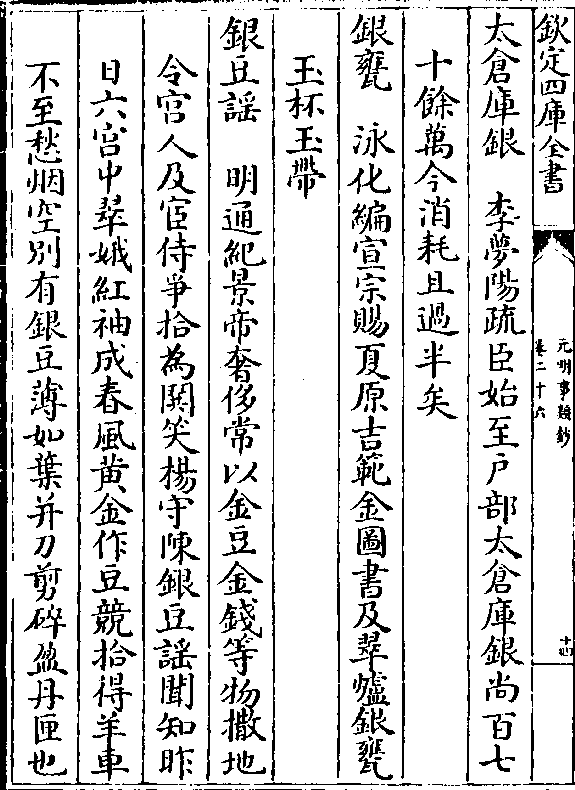 欽定四庫全書
元明事類鈔
卷二十六
十四
太倉庫銀　李夢陽疏臣始至戶部太倉庫銀尚百七
十餘萬今消耗且過半矣
銀甕　泳化編宣宗賜夏原吉範金圖書及翠爐銀甕
玉杯玉帶
銀豆謡　明通紀景帝奢侈常以金豆金錢等物撒地
令宫人及宦侍爭拾為鬨笑楊守陳銀豆謡聞知昨
日六宫中翠娥紅袖成春風黄金作豆競拾得羊車
不至愁烟空别有銀豆薄如葉并刀剪碎盈丹匣也